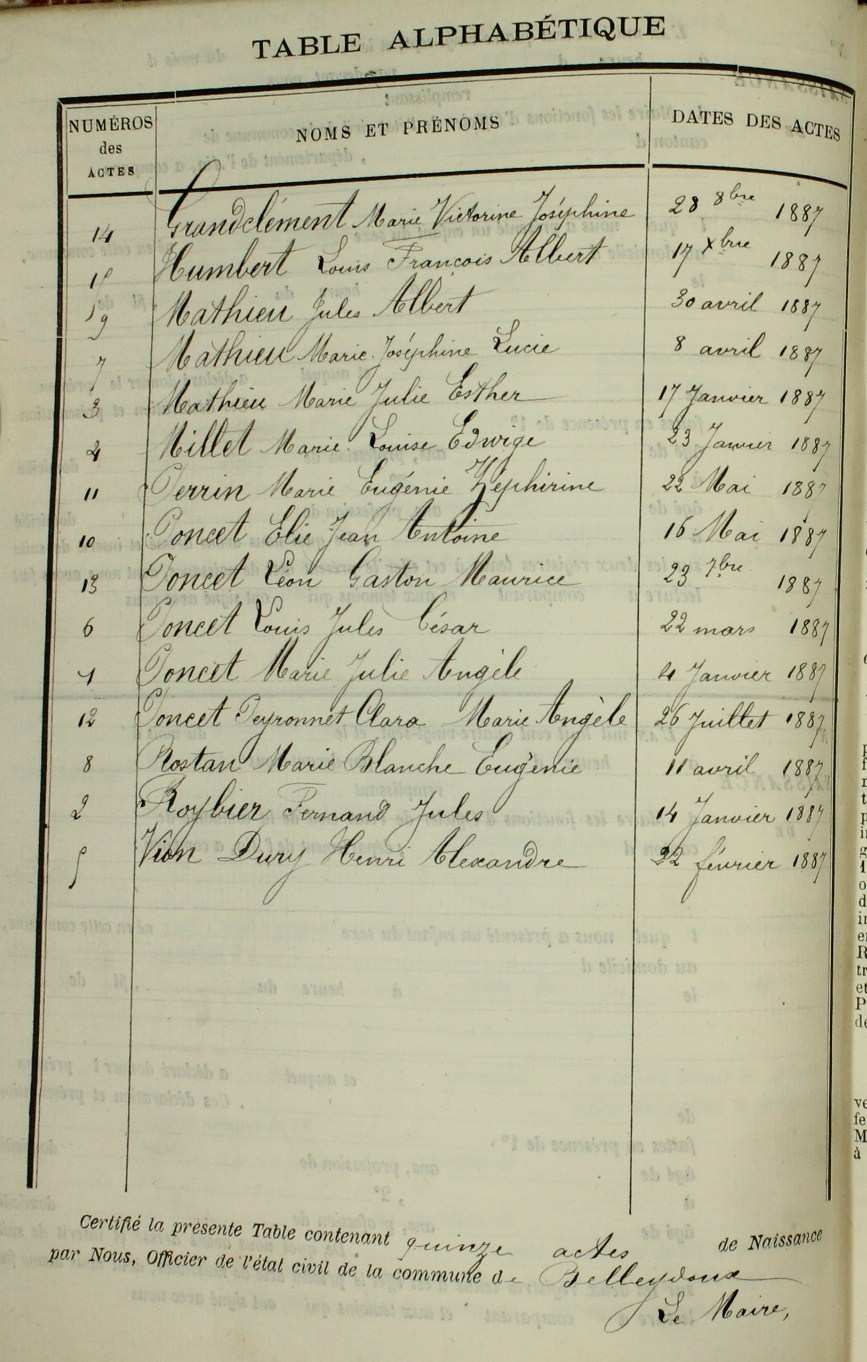 TABLE ALPHABÉTIQUE
NUMÉROS des ACTES
NOMS ET PRÉNOMS
DATES DES ACTES
14 Grandclément Marie Victorine Joséphine 28 8bre 1887
15 Humbert Louis François Albert 17 Xbre 1887
9 Mathieu Jules Albert 30 avril 1887
7 Mathieu Marie Joséphine Lucie 8 avril 1887
3 Mathieu Marie Julie Esther 17 Janvier 1887
4 Millet Marie Louise Edwige 23 Janvier 1887
11 Perrin Marie Eugénie Zéphirine 22 Mai 1887
10 Poncet Elie Jean Antoine 16 Mai 1887
13 Poncet Léon Gaston Maurice 23 7bre 1887
6 Poncet Louis Jules César 22 mars 1887
1 Poncet Marie Julie Angèle 4 Janvier 1887
12 Poncet Peyronnet Clara Marie Angèle 26 Juillet 1887
8 Rostan Marie Blanche Eugénie 11 avril 1887
2 Roybier Fernand Jules 14 Janvier 1887
5 Vion Dury Henri Alexandre 22 février 1887
Certifié la présente Table contenant quinze actes de Naissance
par Nous, Officier de l'état civil de la commune de Belleydoux
Le Maire,